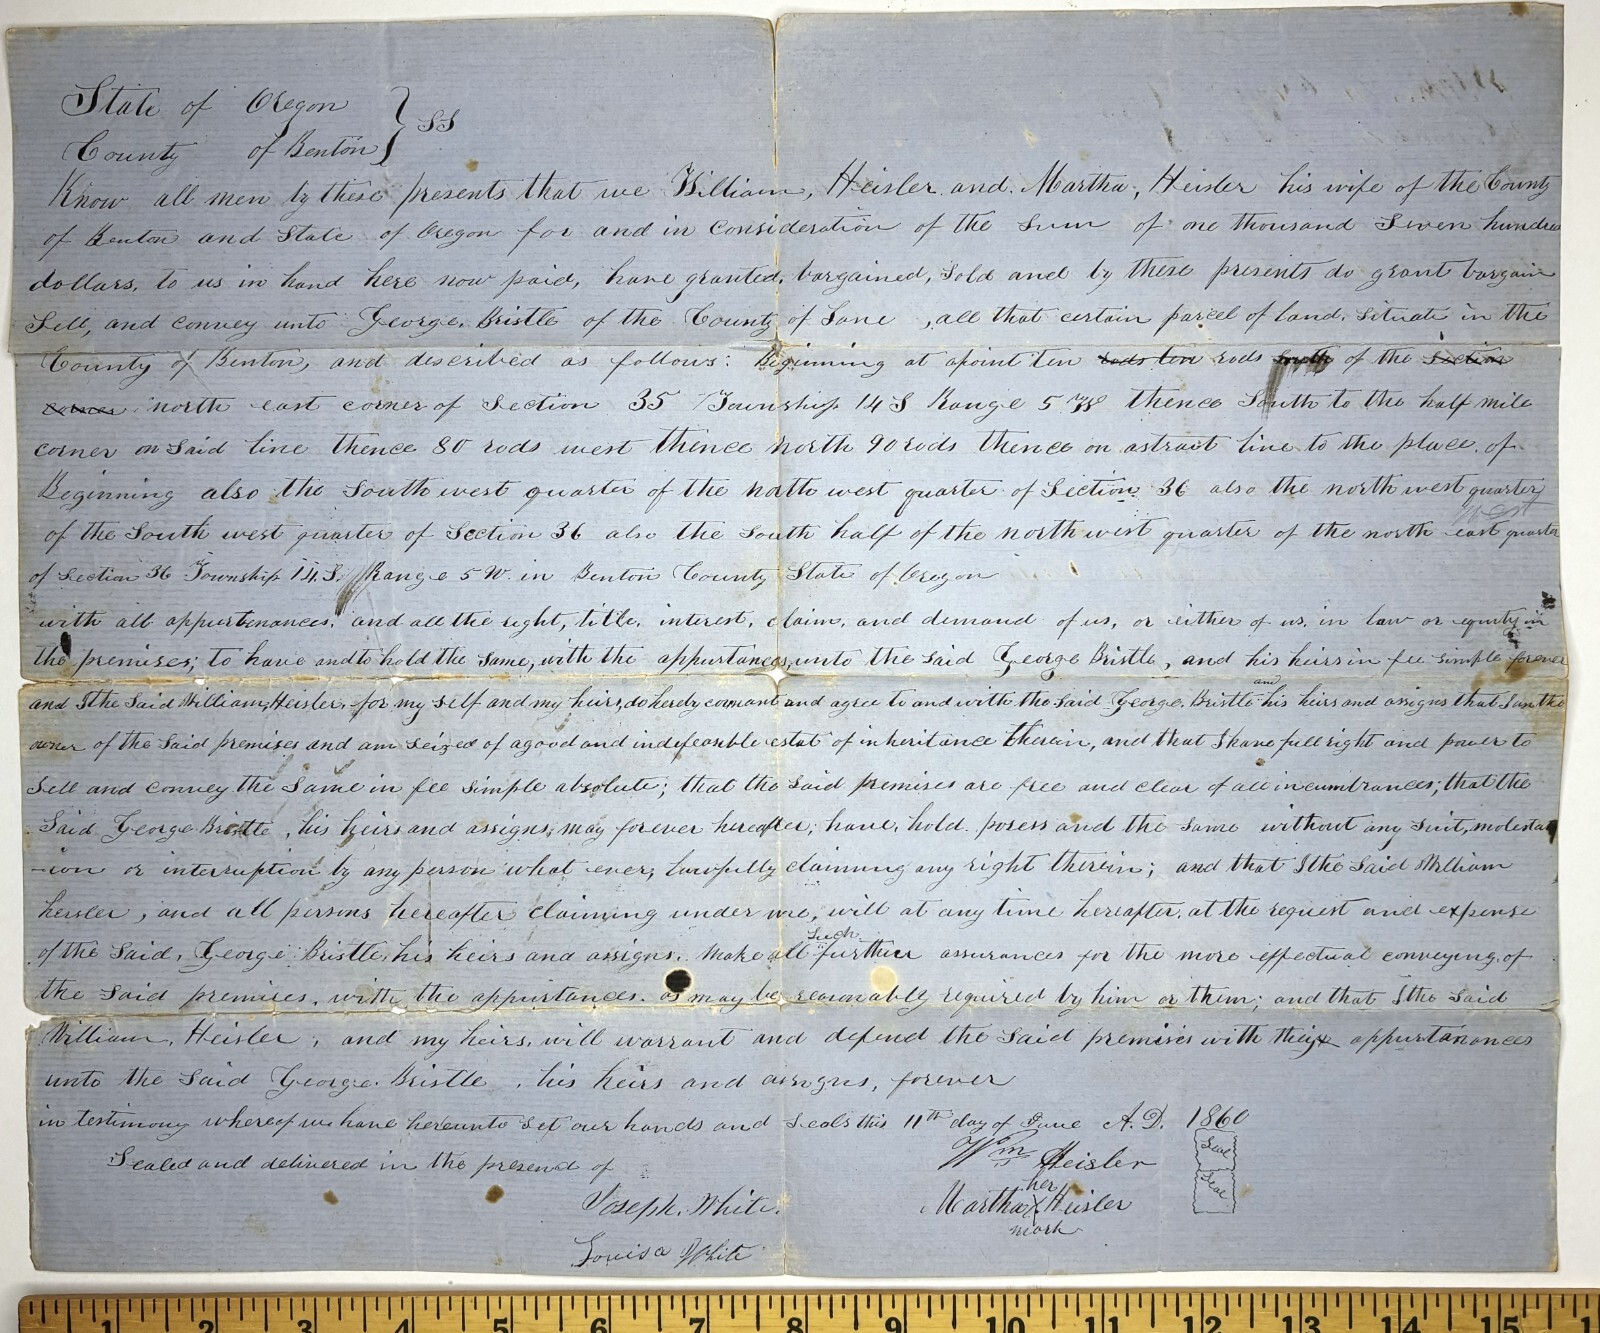 State of Oregon
County of Benton } SS
Know all men by these presents that we William, Heisler and Martha, Heisler his wife of the County
of Benton and State of Oregon for and in consideration of the Sum of one thousand Seven hundred
dollars, to us in hand here now paid, have granted, bargained, Sold and by these presents do grant bargain
Sell, and convey unto George. Bristle of the County of Lane , all that certain parcel of land, situate in the
County of Benton, and described as follows: Beginning at apoint ten rods ten rods south of the Section
corner north east corner of Section 35 Township 14 S Range 5 W thence South to the half mile
corner on Said line thence 80 rods west thence north 90 rods thence on astract line to the place of
Beginning also the South west quarter of the noth west quarter of Section 36 also the north west quarter
of the South west quarter of Section 36 also the South half of the north west quarter of the north east quarter
west
of Section 36 Township 14. S. Range 5 W. in Benton County State of Oregon
with all appurtenances, and all the right, title, interest, claim, and demand of us, or either of us, in law or equity in
the premises; to have and to hold the Same, with the appurtances, unto the said George Bristle, and his heirs in fee simple forever
and I the Said William, Heisler, for my self and my heirs, do hereby covenant and agree to and with the Said George. Bristle and his heirs and assigns that I am the
owner of the Said premises and am seized of a good and indefeasible estat of inheritance therein, and that I have full right and power to
Sell and convey the Same in fee simple absolute; that the Said premises are free and clear of all incumbrances; that the
Said George Bristle, his heirs and assigns, may forever hereafter, have, hold. posess and the same without any Suit, molestat
-ion or interruption by any person what ever, lawfully claiming any right therein; and that I the Said William
heisler, and all persons hereafter claiming under me, will at any time hereafter, at the request and expense
of the Said, George Bristle, his heirs and assigns. Make all such further assurances for the more effectual conveying, of
the Said premises, with the appurtances. as may be reasonably required by him or them; and that I the Said
William, Heisler, and my heirs, will warrant and defend the Said premises with they appurtanances
unto the Said George. Bristle, his heirs and assigns, forever
in testimony whereof we have hereunto Set our hands and Seals this 11th day of June A.D. 1860
Sealed and delivered in the presend of
Wm Heisler Seal
Joseph. White.
Martha her X mark Heisler Seal
Louisa White
1 2 3 4 5 6 7 8 9 10 11 12 13 14 15